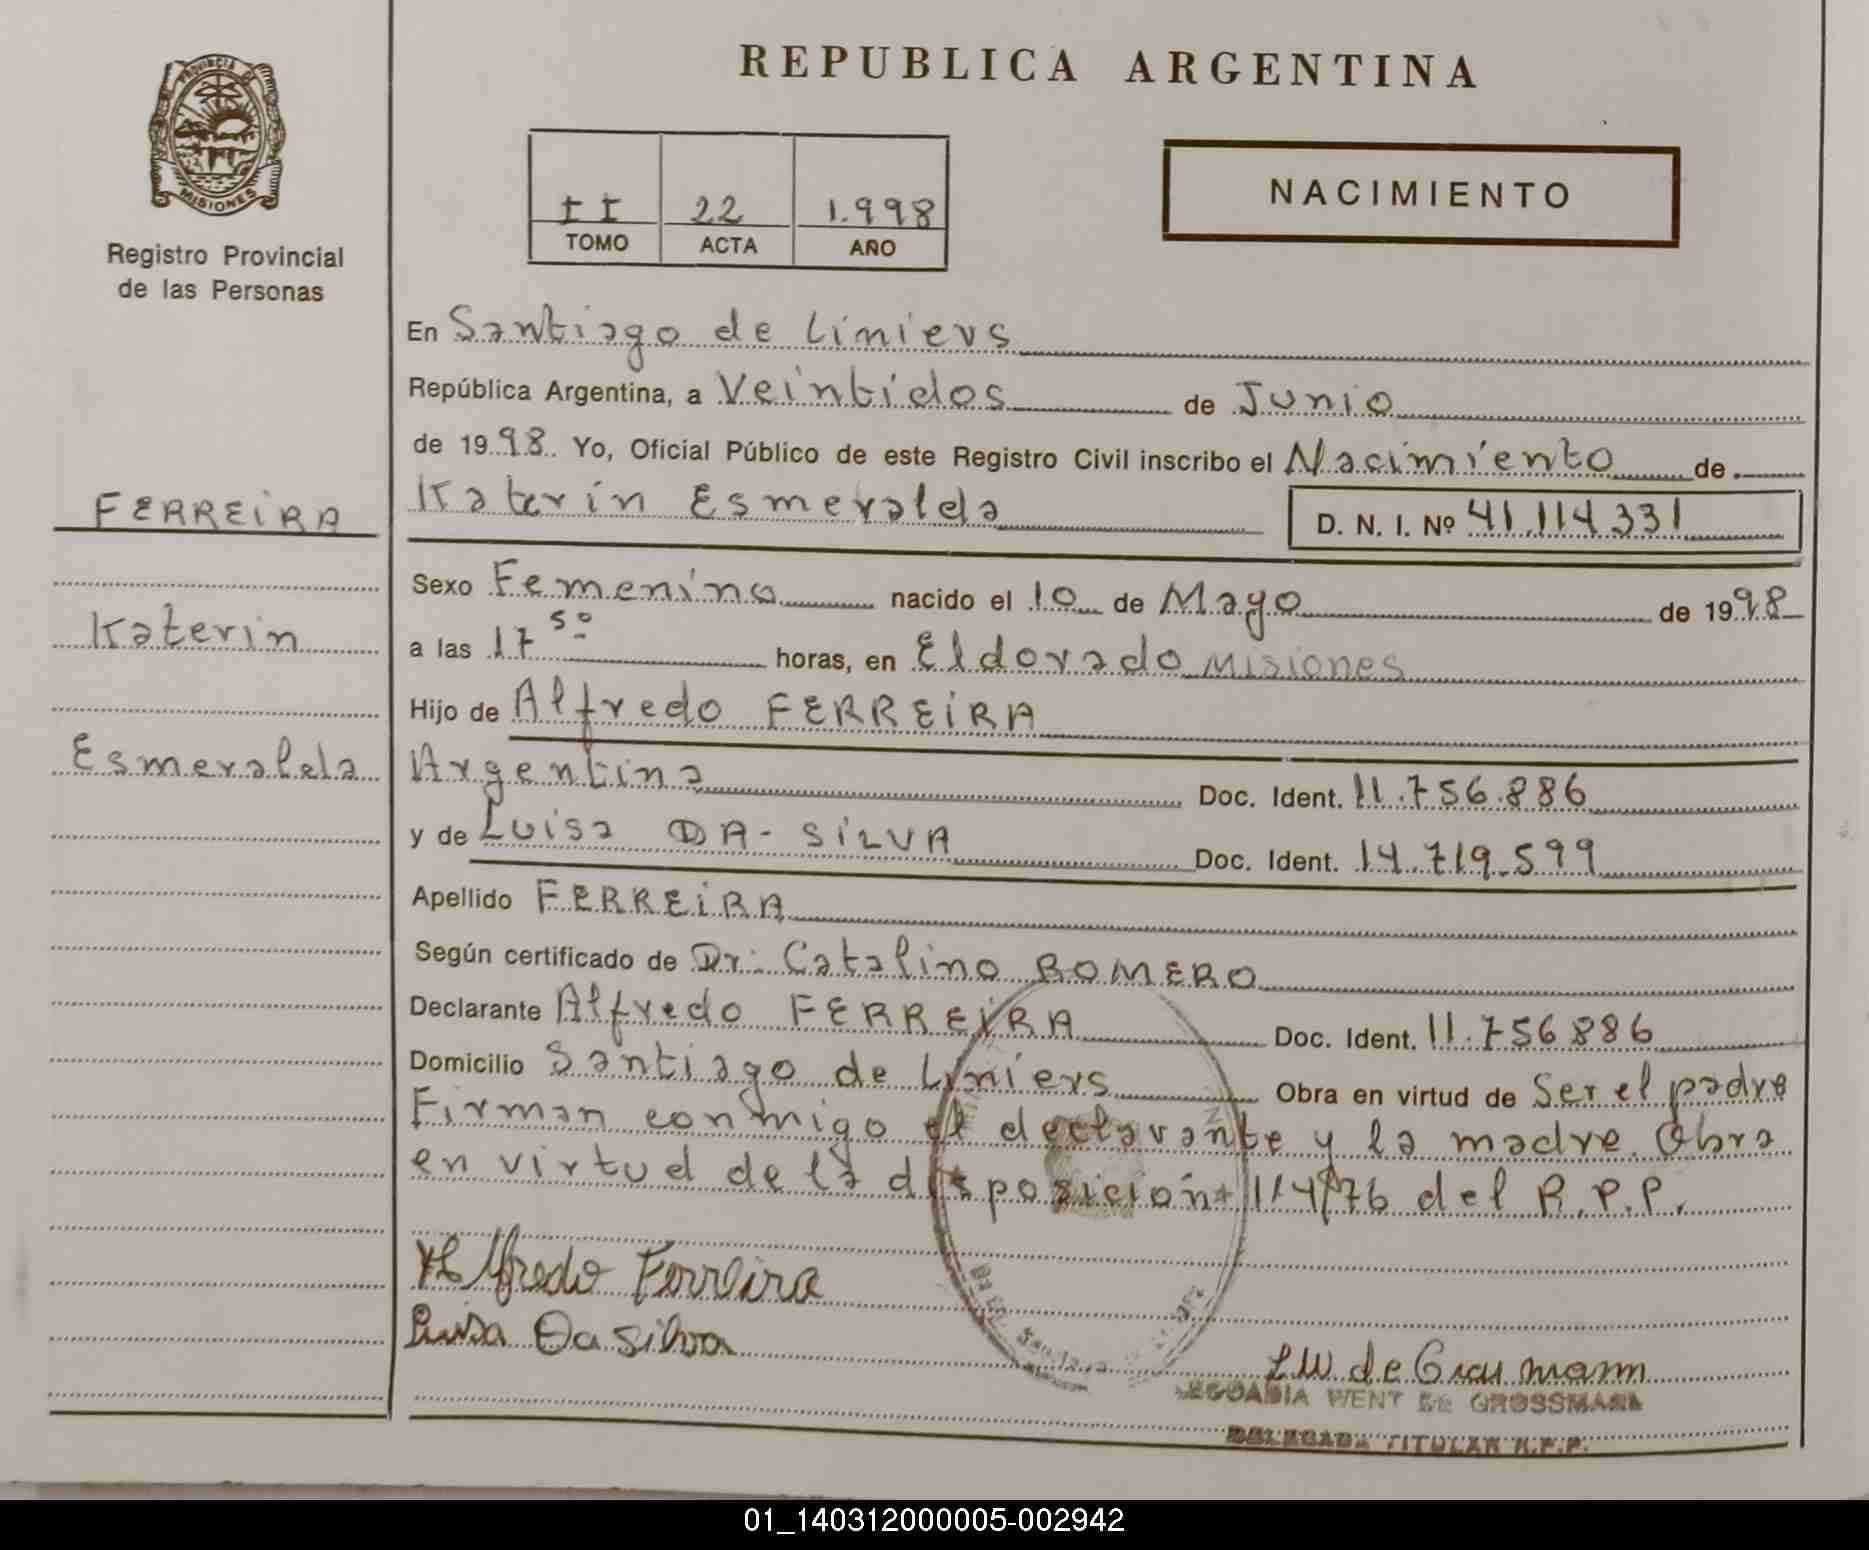 PROVINCIA DE
MISIONES
Registro Provincial
de las Personas
FERREIRA
Katerin
Esmeralda
REPUBLICA ARGENTINA
II 22 1.998
TOMO ACTA AÑO
NACIMIENTO
En Santiago de Liniers
República Argentina, a Veintidos de Junio
de 1998. Yo, Oficial Público de este Registro Civil inscribo el Nacimiento de
Katerin Esmeralda D. N. I. Nº 41.114.331
Sexo Femenino nacido el 10 de Mayo de 1998
a las 17 50 horas, en Eldorado Misiones
Hijo de Alfredo FERREIRA
Argentina Doc. Ident. 11.756.886
y de Luisa DA-SILVA Doc. Ident. 14.719.599
Apellido FERREIRA
Según certificado de Dr: Catalino ROMERO
Declarante Alfredo FERREIRA Doc. Ident. 11.756886
Domicilio Santiago de Liniers Obra en virtud de Ser el padre
Firman conmigo el declarante y la madre. Obra
en virtud de la disposición 114/76 del R.P.P.
Alfredo Ferreira
Luisa Da silva
L W de Grosmann
WENT DE GROSSMANN
DELEGADA TITULAR R.P.P.
01_140312000005-002942